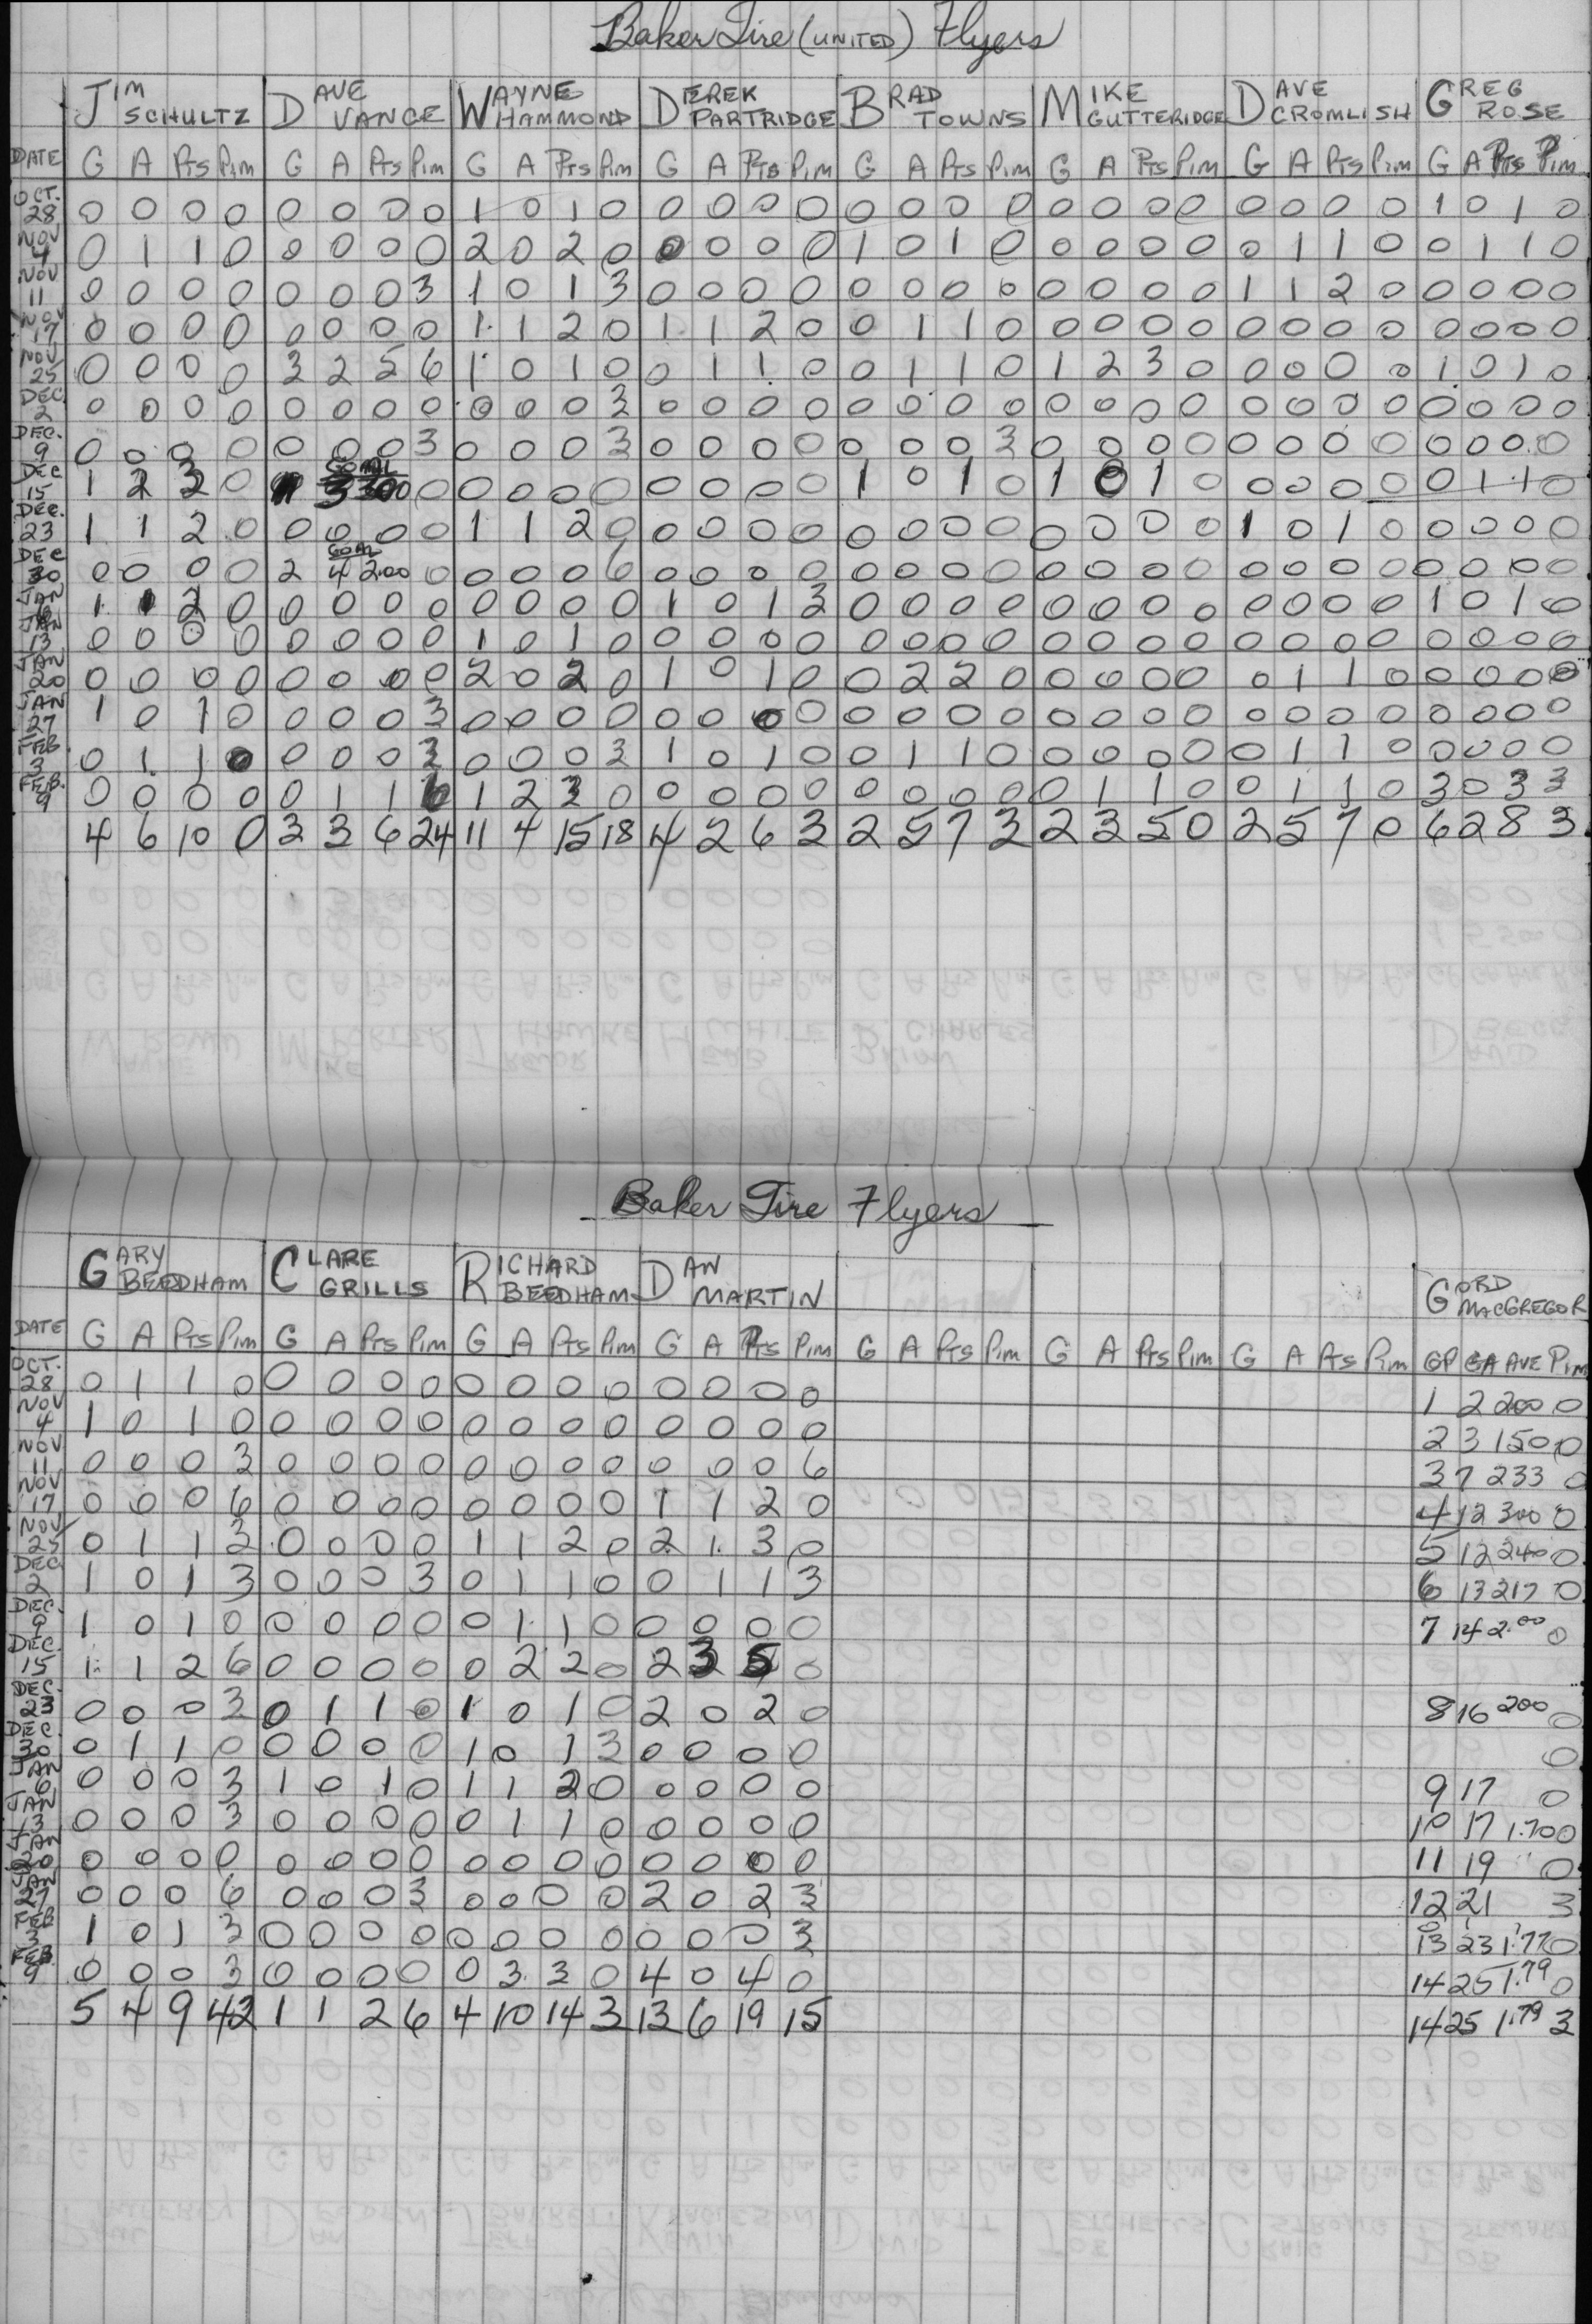 Baker Tire (UNITED) Flyers
JIM SCHULTZ DAVE VANCE WAYNE HAMMOND DEREK PARTRIDGE BRAD TOWNS MIKE GUTTERIDGE DAVE CROMLISH GREG ROSE
DATE G A Pts Pim G A Pts Pim G A Pts Pim G A Pts Pim G A Pts Pim G A Pts Pim G A Pts Pim G A Pts Pim
OCT. 28 0 0 0 0 0 0 0 0 1 0 1 0 0 0 0 0 0 0 0 0 0 0 0 0 0 0 0 0 1 0 1 0
NOV 4 0 1 1 0 0 0 0 0 2 0 2 0 0 0 0 0 1 0 1 0 0 0 0 0 0 1 1 0 0 1 1 0
NOV 11 0 0 0 0 0 0 0 3 1 0 1 3 0 0 0 0 0 0 0 0 0 0 0 0 1 1 2 0 0 0 0 0
NOV 17 0 0 0 0 0 0 0 0 1 1 2 0 1 1 2 0 0 1 1 0 0 0 0 0 0 0 0 0 0 0 0 0
NOV 25 0 0 0 0 3 2 5 6 1 0 1 0 0 1 1 0 0 1 1 0 1 2 3 0 0 0 0 0 1 0 1 0
DEC 2 0 0 0 0 0 0 0 0 0 0 0 3 0 0 0 0 0 0 0 0 0 0 0 0 0 0 0 0 0 0 0 0
DEC. 9 0 0 0 0 0 0 0 3 0 0 0 3 0 0 0 0 0 0 0 3 0 0 0 0 0 0 0 0 0 0 0 0
DEC 15 1 2 3 0 1 GOAL 3 300 0 0 0 0 0 0 0 0 0 1 0 1 0 1 0 1 0 0 0 0 0 0 1 1 0
DEC. 23 1 1 2 0 0 0 0 0 1 1 2 0 0 0 0 0 0 0 0 0 0 0 0 0 1 0 1 0 0 0 0 0
DEC 30 0 0 0 0 2 GOAL 4 2.00 0 0 0 0 6 0 0 0 0 0 0 0 0 0 0 0 0 0 0 0 0 0 0 0 0
JAN 6 1 1 2 0 0 0 0 0 0 0 0 0 1 0 1 3 0 0 0 0 0 0 0 0 0 0 0 0 1 0 1 0
JAN 13 0 0 0 0 0 0 0 0 1 0 1 0 0 0 0 0 0 0 0 0 0 0 0 0 0 0 0 0 0 0 0 0
JAN 20 0 0 0 0 0 0 0 0 2 0 2 0 1 0 1 0 0 2 2 0 0 0 0 0 0 1 1 0 0 0 0 0
JAN 27 1 0 1 0 0 0 0 3 0 0 0 0 0 0 0 0 0 0 0 0 0 0 0 0 0 0 0 0 0 0 0 0
FEB 3 0 1 1 0 0 0 0 3 0 0 0 3 1 0 1 0 0 1 1 0 0 0 0 0 0 1 1 0 0 0 0 0
FEB. 9 0 0 0 0 0 1 1 6 1 2 3 0 0 0 0 0 0 0 0 0 0 1 1 0 0 1 1 0 3 0 3 3
4 6 10 0 3 3 6 24 11 4 15 18 4 2 6 3 2 5 7 3 2 3 5 0 2 5 7 0 6 2 8 3
Baker Tire Flyers
GARY BEEDHAM CLARE GRILLS RICHARD BEEDHAM DAN MARTIN GORD MACGREGOR
DATE G A Pts Pim G A Pts Pim G A Pts Pim G A Pts Pim G A Pts Pim G A Pts Pim G A Pts Pim GP GA AVE Pim
OCT. 28 0 1 1 0 0 0 0 0 0 0 0 0 0 0 0 0 1 2 200 0
NOV 4 1 0 1 0 0 0 0 0 0 0 0 0 0 0 0 0 2 3 150 0
NOV 11 0 0 0 3 0 0 0 0 0 0 0 0 0 0 0 6 3 7 233 0
NOV 17 0 0 0 6 0 0 0 0 0 0 0 0 1 1 2 0 4 12 300 0
NOV 25 0 1 1 3 0 0 0 0 1 1 2 0 2 1 3 0 5 12 240 0
DEC 2 1 0 1 3 0 0 0 3 0 1 1 0 0 1 1 3 6 13 217 0
DEC. 9 1 0 1 0 0 0 0 0 0 1 1 0 0 0 0 0 7 14 2.00 0
DEC. 15 1 1 2 6 0 0 0 0 0 2 2 0 2 3 5 0
DEC. 23 0 0 0 3 0 1 1 0 1 0 1 0 2 0 2 0 8 16 200 0
DEC. 30 0 1 1 0 0 0 0 0 1 0 1 3 0 0 0 0 0
JAN 6 0 0 0 3 1 0 1 0 1 1 2 0 0 0 0 0 9 17 0
JAN 13 0 0 0 3 0 0 0 0 0 1 1 0 0 0 0 0 10 17 1.70 0
JAN 20 0 0 0 0 0 0 0 0 0 0 0 0 0 0 0 0 11 19 0
JAN 27 0 0 0 6 0 0 0 3 0 0 0 0 2 0 2 3 12 21 3
FEB 3 1 0 1 3 0 0 0 0 0 0 0 0 0 0 0 3 13 23 1.77 0
FEB. 9 0 0 0 3 0 0 0 0 0 3 3 0 4 0 4 0 14 25 1.79 0
5 4 9 42 1 1 2 6 4 10 14 3 13 6 19 15 14 25 1.79 3